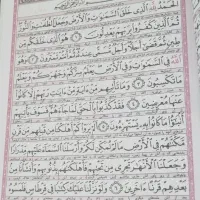 اَلْحَمْدُ لِلّٰهِ الَّذِيْ خَلَقَ السَّمٰوٰتِ وَالْاَرْضَ وَجَعَلَ الظُّلُمٰتِ وَالنُّوْرَ
ثُمَّ الَّذِيْنَ كَفَرُوْا بِرَبِّهِمْ يَعْدِلُوْنَ ۱ هُوَ الَّذِيْ خَلَقَكُمْ مِّنْ
طِيْنٍ ثُمَّ قَضٰۤى اَجَلًا وَاَجَلٌ مُّسَمًّى عِنْدَهٗ ثُمَّ اَنْتُمْ تَمْتَرُوْنَ ۲ وَهُوَ
اللّٰهُ فِي السَّمٰوٰتِ وَفِي الْاَرْضِ يَعْلَمُ سِرَّكُمْ وَجَهْرَكُمْ وَيَعْلَمُ
مَا تَكْسِبُوْنَ ۳ وَمَا تَاْتِيْهِمْ مِّنْ اٰيَةٍ مِّنْ اٰيٰتِ رَبِّهِمْ اِلَّا كَانُوْا
عَنْهَا مُعْرِضِيْنَ ۴ فَقَدْ كَذَّبُوْا بِالْحَقِّ لَمَّا جَآءَهُمْ فَسَوْفَ يَاْتِيْهِمْ
اَنْۢبٰٓؤُا مَا كَانُوْا بِهٖ يَسْتَهْزِءُوْنَ ۵ اَلَمْ يَرَوْا كَمْ اَهْلَكْنَا مِنْ قَبْلِهِمْ مِّنْ قَرْنٍ
مَّكَّنّٰهُمْ فِي الْاَرْضِ مَا لَمْ نُمَكِّنْ لَّكُمْ وَاَرْسَلْنَا السَّمَآءَ عَلَيْهِمْ مِّدْرَارًا
وَّجَعَلْنَا الْاَنْهٰرَ تَجْرِيْ مِنْ تَحْتِهِمْ فَاَهْلَكْنٰهُمْ بِذُنُوْبِهِمْ وَاَنْشَاْنَا مِنْۢ
بَعْدِهِمْ قَرْنًا اٰخَرِيْنَ ۶ وَلَوْ نَزَّلْنَا عَلَيْكَ كِتٰبًا فِيْ قِرْطَاسٍ فَلَمَسُوْهُ